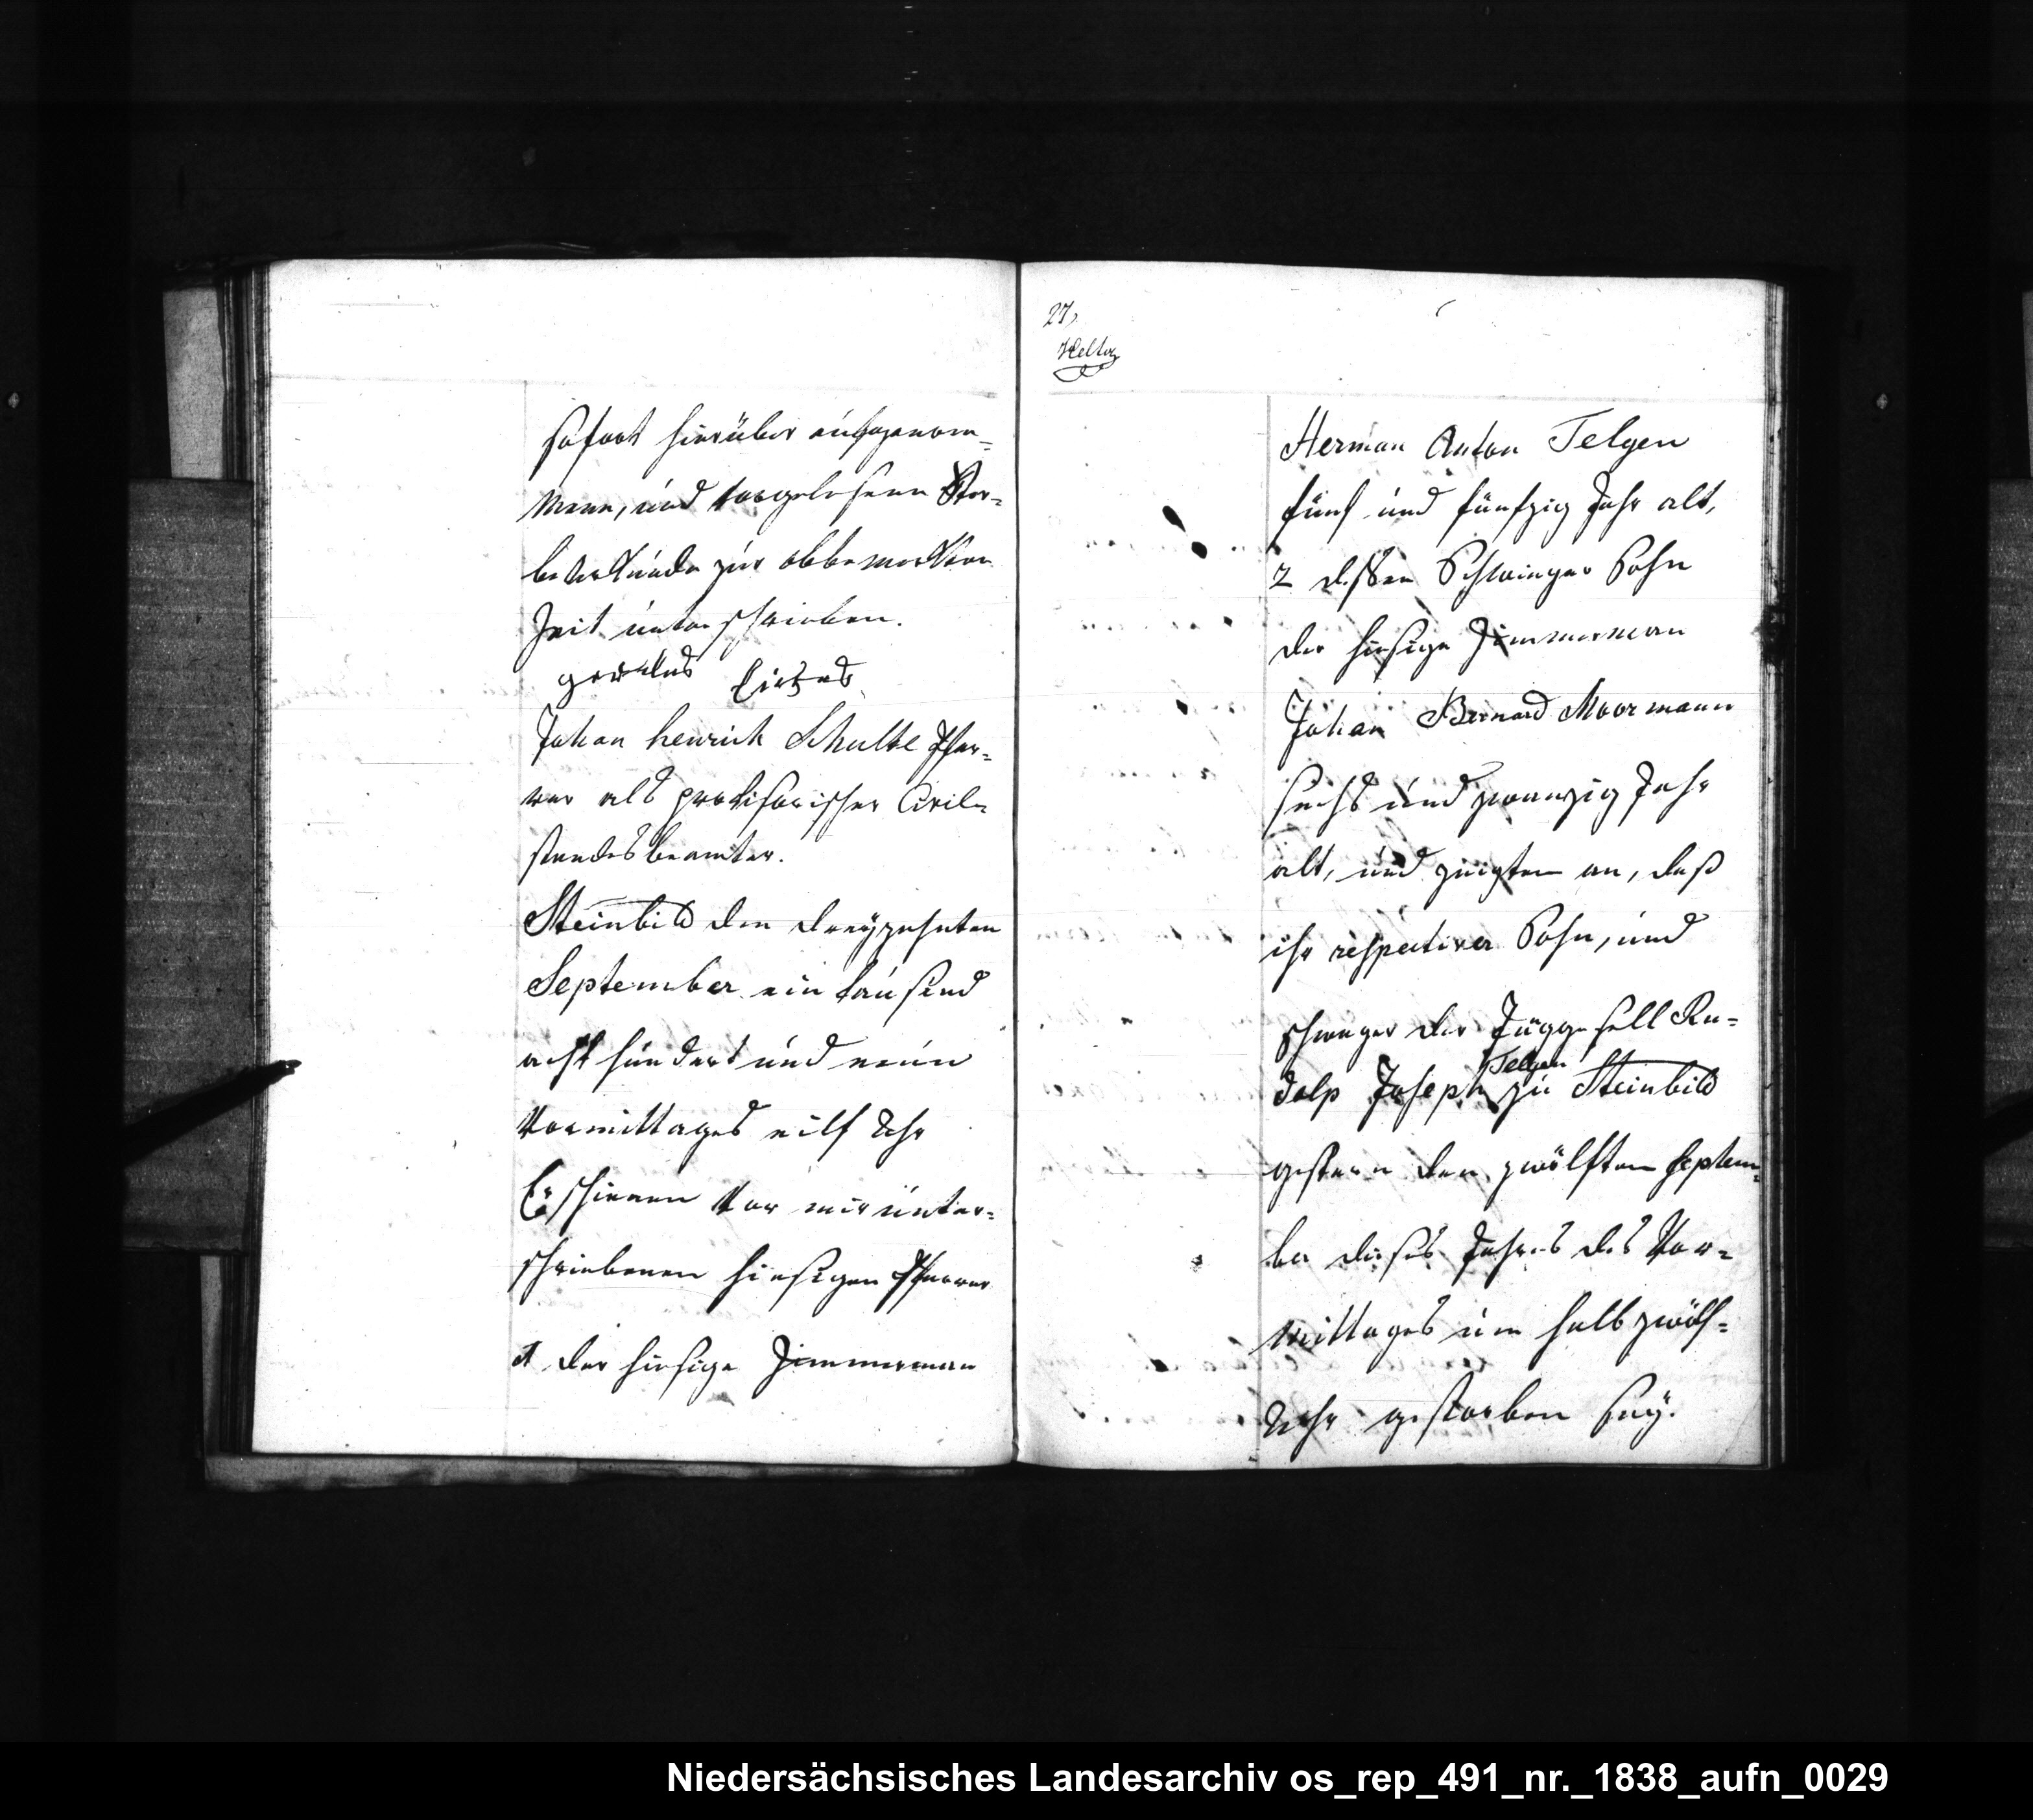 sofort hierüber aufgenom=
mene, und vorgelesene Ster=
beurkunde zur obbemerkten
Zeit unterschrieben.
Gerdes Eirtes
Johan henrich Schulte Pfar=
rer als provisorischer Civil=
standesbeamter.
Steinbild den dreÿzehnten
September ein tausend
acht hundert und neun
Vormittages eilf Uhr
Erschienen vor mir unter=
schriebenen hiesigen Pfarrer
1 der hiesige Zimmerman
27,
Herman Anton Telgen
fünf und fünfzig Jahr alt,
2 dessen Schwieger Sohn
der hiesige Zimmerman
Johan Bernard Moormann
sechs und zwanzig Jahr
alt, und zeigten an, daß
ihr respectiver Sohn, und
schwager der Jüggesell Ru=
dolp Joseph Telgen zu Steinbild
gestern den zwölften Septem=
ber dieses Jahres des Vor=
mittages um halb zwölf=
Uhr gestorben seÿ.
Niedersächsisches Landesarchiv os_rep_491_nr._1838_aufn_0029